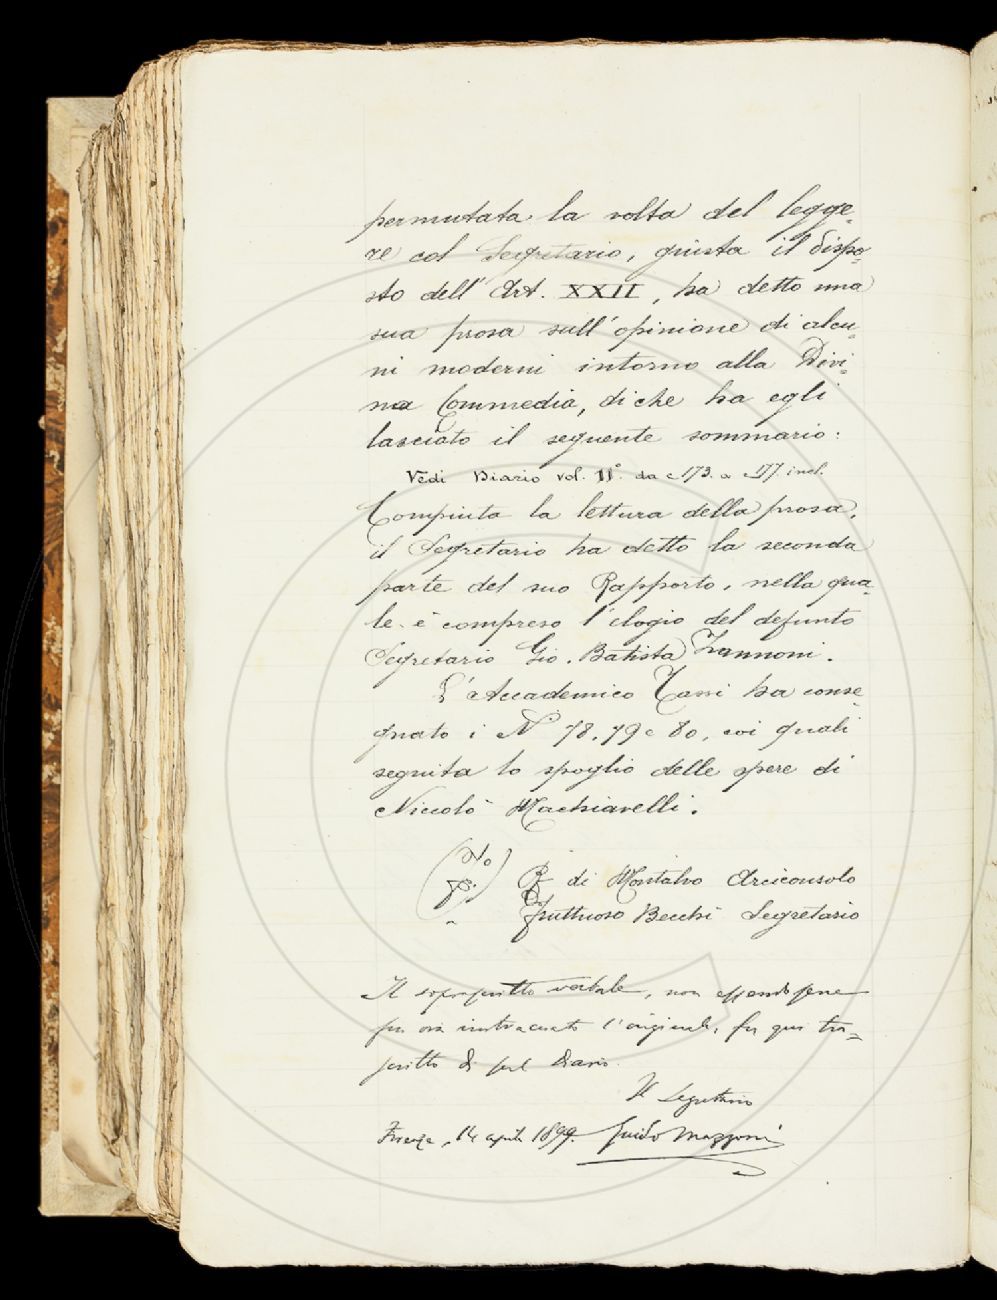 permutata la volta del legge-
re col Segretario, giusta il dispo-
sto dell'Art. XXII, ha detto una
sua prosa sull'opinione di alcu-
ni moderni intorno alla Divi-
na Commedia, di che ha egli
lasciato il seguente sommario:
Vedi Diario vol. IIº. da c 173. a c 177. incl.
Compiuta la lettura della prosa,
il Segretario ha detto la seconda
parte del suo Rapporto, nella qua-
le è compreso l'elogio del defunto
Segretario Gio. Batista Zannoni.
L'Accademico Tassi ha conse
gnato i N 78, 79 e 80, coi quali
seguita lo spoglio delle opere di
Niccolò Machiavelli.
di Montalvo Arciconsolo
Fruttuoso Becchi Segretario
Il soprascritto verbale, non essendosene
fin ora rintracciato l'originale, fu qui tra=
scritto di sul Diario.
Il Segretario
Firenze, 14 aprile 1899. Guido Mazzoni